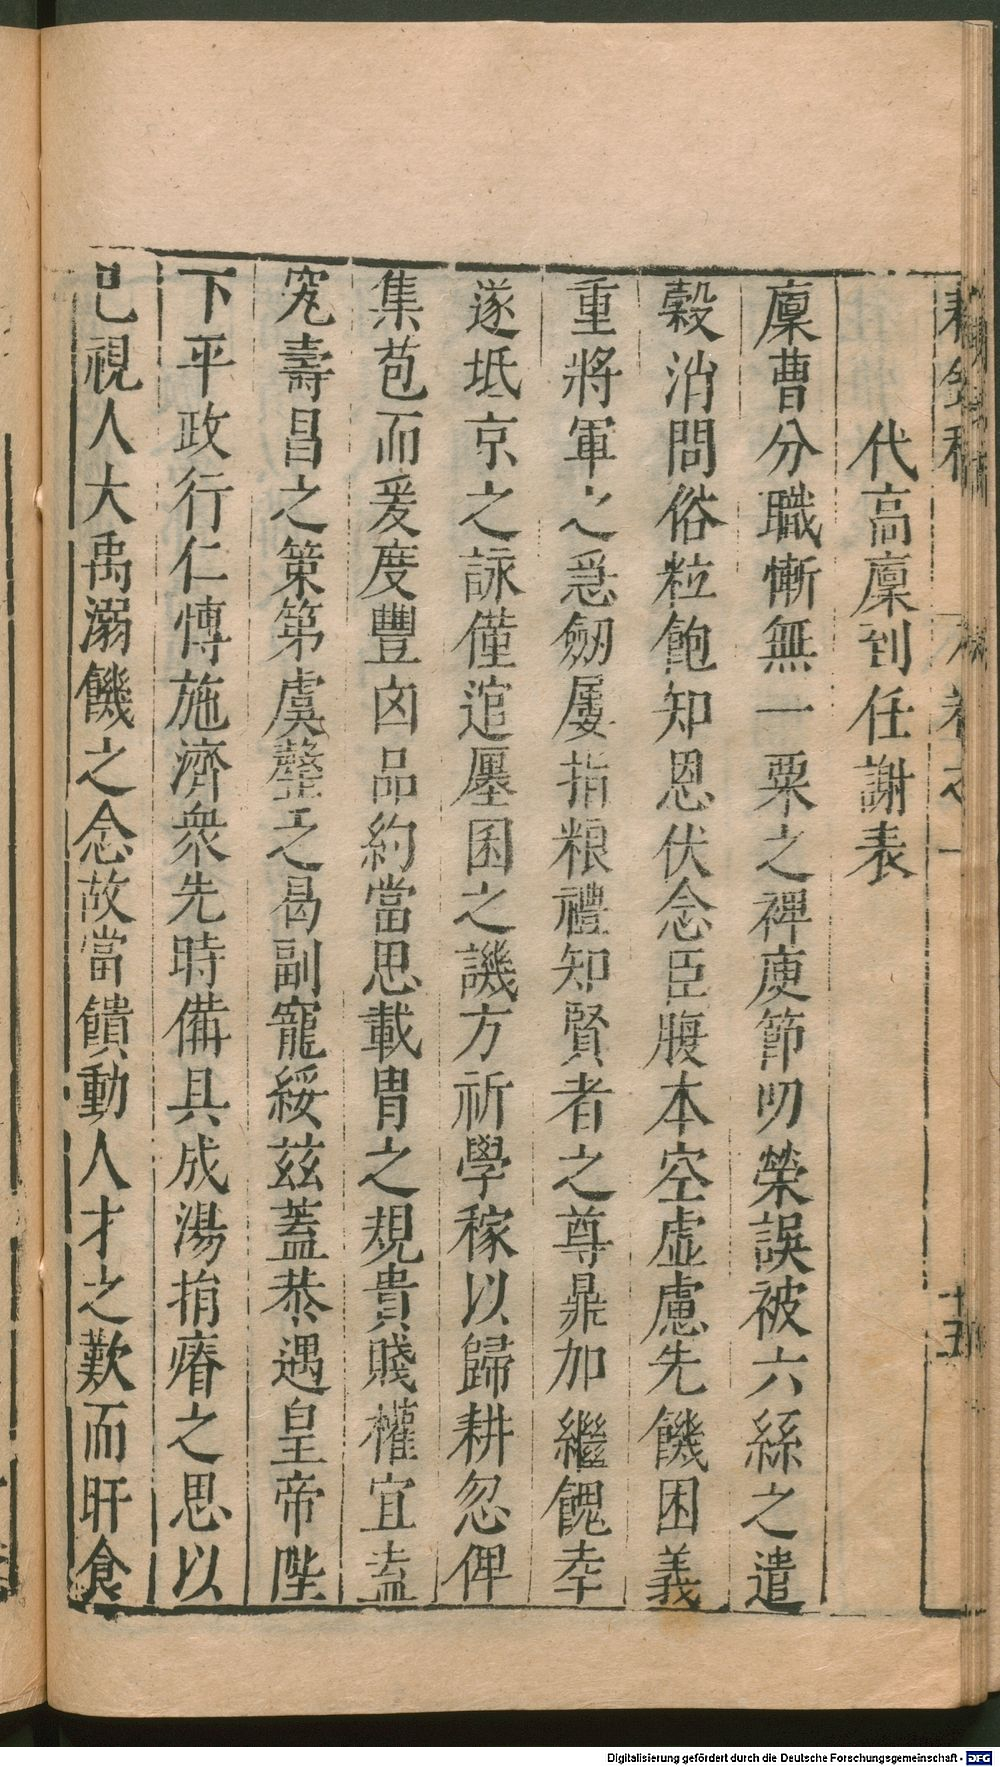 代高廩到任謝表
廩曹分職慚無一粟之裨庾節叨榮誤被六絲之遣
穀消問俗粒飽知恩伏念臣腹本空虛慮先饑困義
重將軍之急劔屢指粮禮知賢者之尊鼎加繼餽幸
遂坻京之詠僅逭廛囷之譏方祈學稼以歸耕忽俾
集苞而爰度豐凶品約當思載胃之規貴賤權宜盍
究壽昌之策第虞罄之曷副寵綏兹蓋恭遇皇帝陛
下平政行仁博施濟衆先時備具成湯捐瘠之思以
已視人大禹溺饑之念故當饋動人才之歎而旰食
卷之一
十五
Digitalisierung gefördert durch die Deutsche Forschungsgemeinschaft - DFG